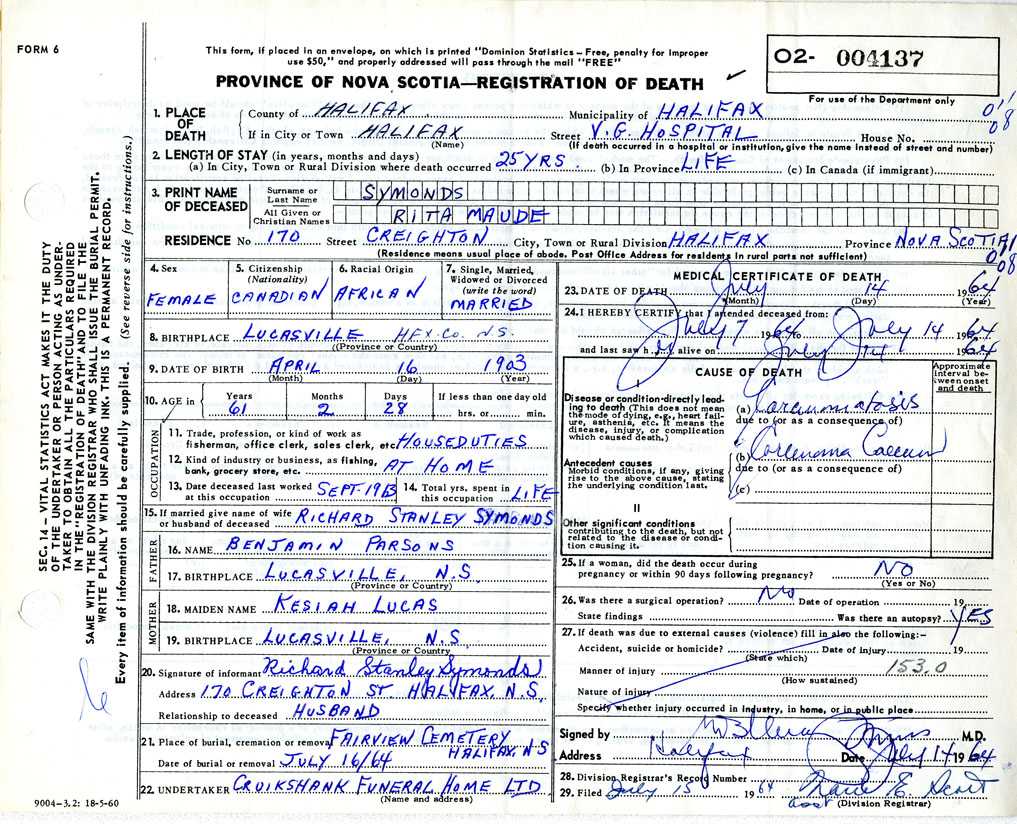 FORM 6
This form, if placed in an envelope, on which is printed "Dominion Statistics – Free, penalty for improper
use $50," and properly addressed will pass through the mail "FREE"
PROVINCE OF NOVA SCOTIA—REGISTRATION OF DEATH
02- 004137
For use of the Department only
1. PLACE OF DEATH
County of HALIFAX Municipality of HALIFAX
If in City or Town HALIFAX Street V.G. HOSPITAL House No.
(Name) (If death occurred in a hospital or institution, give the name instead of street and number)
2. LENGTH OF STAY (in years, months and days)
(a) In City, Town or Rural Division where death occurred 25 YRS (b) In Province LIFE (c) In Canada (if immigrant)
3. PRINT NAME OF DECEASED
Surname or Last Name SYMONDS
All Given or Christian Names RITA MAUDE
RESIDENCE No 170 Street CREIGHTON City, Town or Rural Division HALIFAX Province NOVA SCOTIA
(Residence means usual place of abode. Post Office Address for residents in rural parts not sufficient)
4. Sex FEMALE
5. Citizenship (Nationality) CANADIAN
6. Racial Origin AFRICAN
7. Single, Married, Widowed or Divorced (write the word) MARRIED
8. BIRTHPLACE LUCASVILLE HFX. CO. N.S.
(Province or Country)
9. DATE OF BIRTH APRIL 16 1903
(Month) (Day) (Year)
10. AGE in Years 61 Months 2 Days 28 If less than one day old hrs. or min.
OCCUPATION
11. Trade, profession, or kind of work as
fisherman, office clerk, sales clerk, etc. HOUSEDUTIES
12. Kind of industry or business, as fishing,
bank, grocery store, etc. AT HOME
13. Date deceased last worked at this occupation SEPT. 1963
14. Total yrs. spent in this occupation LIFE
15. If married give name of wife
or husband of deceased RICHARD STANLEY SYMONDS
FATHER
16. NAME BENJAMIN PARSONS
17. BIRTHPLACE LUCASVILLE, N.S.
(Province or Country)
MOTHER
18. MAIDEN NAME KESIAH LUCAS
19. BIRTHPLACE LUCASVILLE, N.S
(Province or Country
20. Signature of informant Richard Stanley Symonds
Address 170 CREIGHTON ST. HALIFAX, N.S.
Relationship to deceased HUSBAND
21. Place of burial, cremation or removal FAIRVIEW CEMETERY
HALIFAX, N.S
Date of burial or removal JULY 16/64
22. UNDERTAKER CRUIKSHANK FUNERAL HOME LTD.
(Name and address)
9004-3.2: 18-5-60
MEDICAL CERTIFICATE OF DEATH
23. DATE OF DEATH July 14 1964
(Month) (Day) (Year)
24. I HEREBY CERTIFY that I attended deceased from:
July 7 1964 to July 14 1964
and last saw h er alive on July 14 1964
CAUSE OF DEATH
Approximate interval between onset and death
I
Disease or condition directly leading to death (This does not mean the mode of dying, e.g., heart failure, asthenia, etc. It means the disease, injury, or complication which caused death.)
(a) Carcinomatosis
due to (or as a consequence of)
Antecedent causes
Morbid conditions, if any, giving rise to the above cause, stating the underlying condition last.
(b) Carcinoma Caecum
due to (or as a consequence of)
(c)
II
Other significant conditions
contributing to the death, but not related to the disease or condition causing it.
25. If a woman, did the death occur during
pregnancy or within 90 days following pregnancy? NO
(Yes or No)
26. Was there a surgical operation? No Date of operation 19
State findings Was there an autopsy? YES
27. If death was due to external causes (violence) fill in also the following:–
Accident, suicide or homicide? Date of injury 19
(State which)
Manner of injury 153.0
(How sustained)
Nature of injury
Specify whether injury occurred in Industry, in home, or in public place
Signed by M.D.
Address Halifax Date July 14 1964
28. Division Registrar's Record Number
29. Filed July 15 1964 Marie E. Scott
asst (Division Registrar)
SEC. 14 – VITAL STATISTICS ACT MAKES IT THE DUTY
OF THE UNDERTAKER OR PERSON ACTING AS UNDER-
TAKER TO OBTAIN ALL THE PARTICULARS REQUIRED
IN THE "REGISTRATION OF DEATH" AND TO FILE THE
SAME WITH THE DIVISION REGISTRAR WHO SHALL ISSUE THE BURIAL PERMIT.
WRITE PLAINLY WITH UNFADING INK. THIS IS A PERMANENT RECORD.
Every item of information should be carefully supplied. (See reverse side for instructions.)